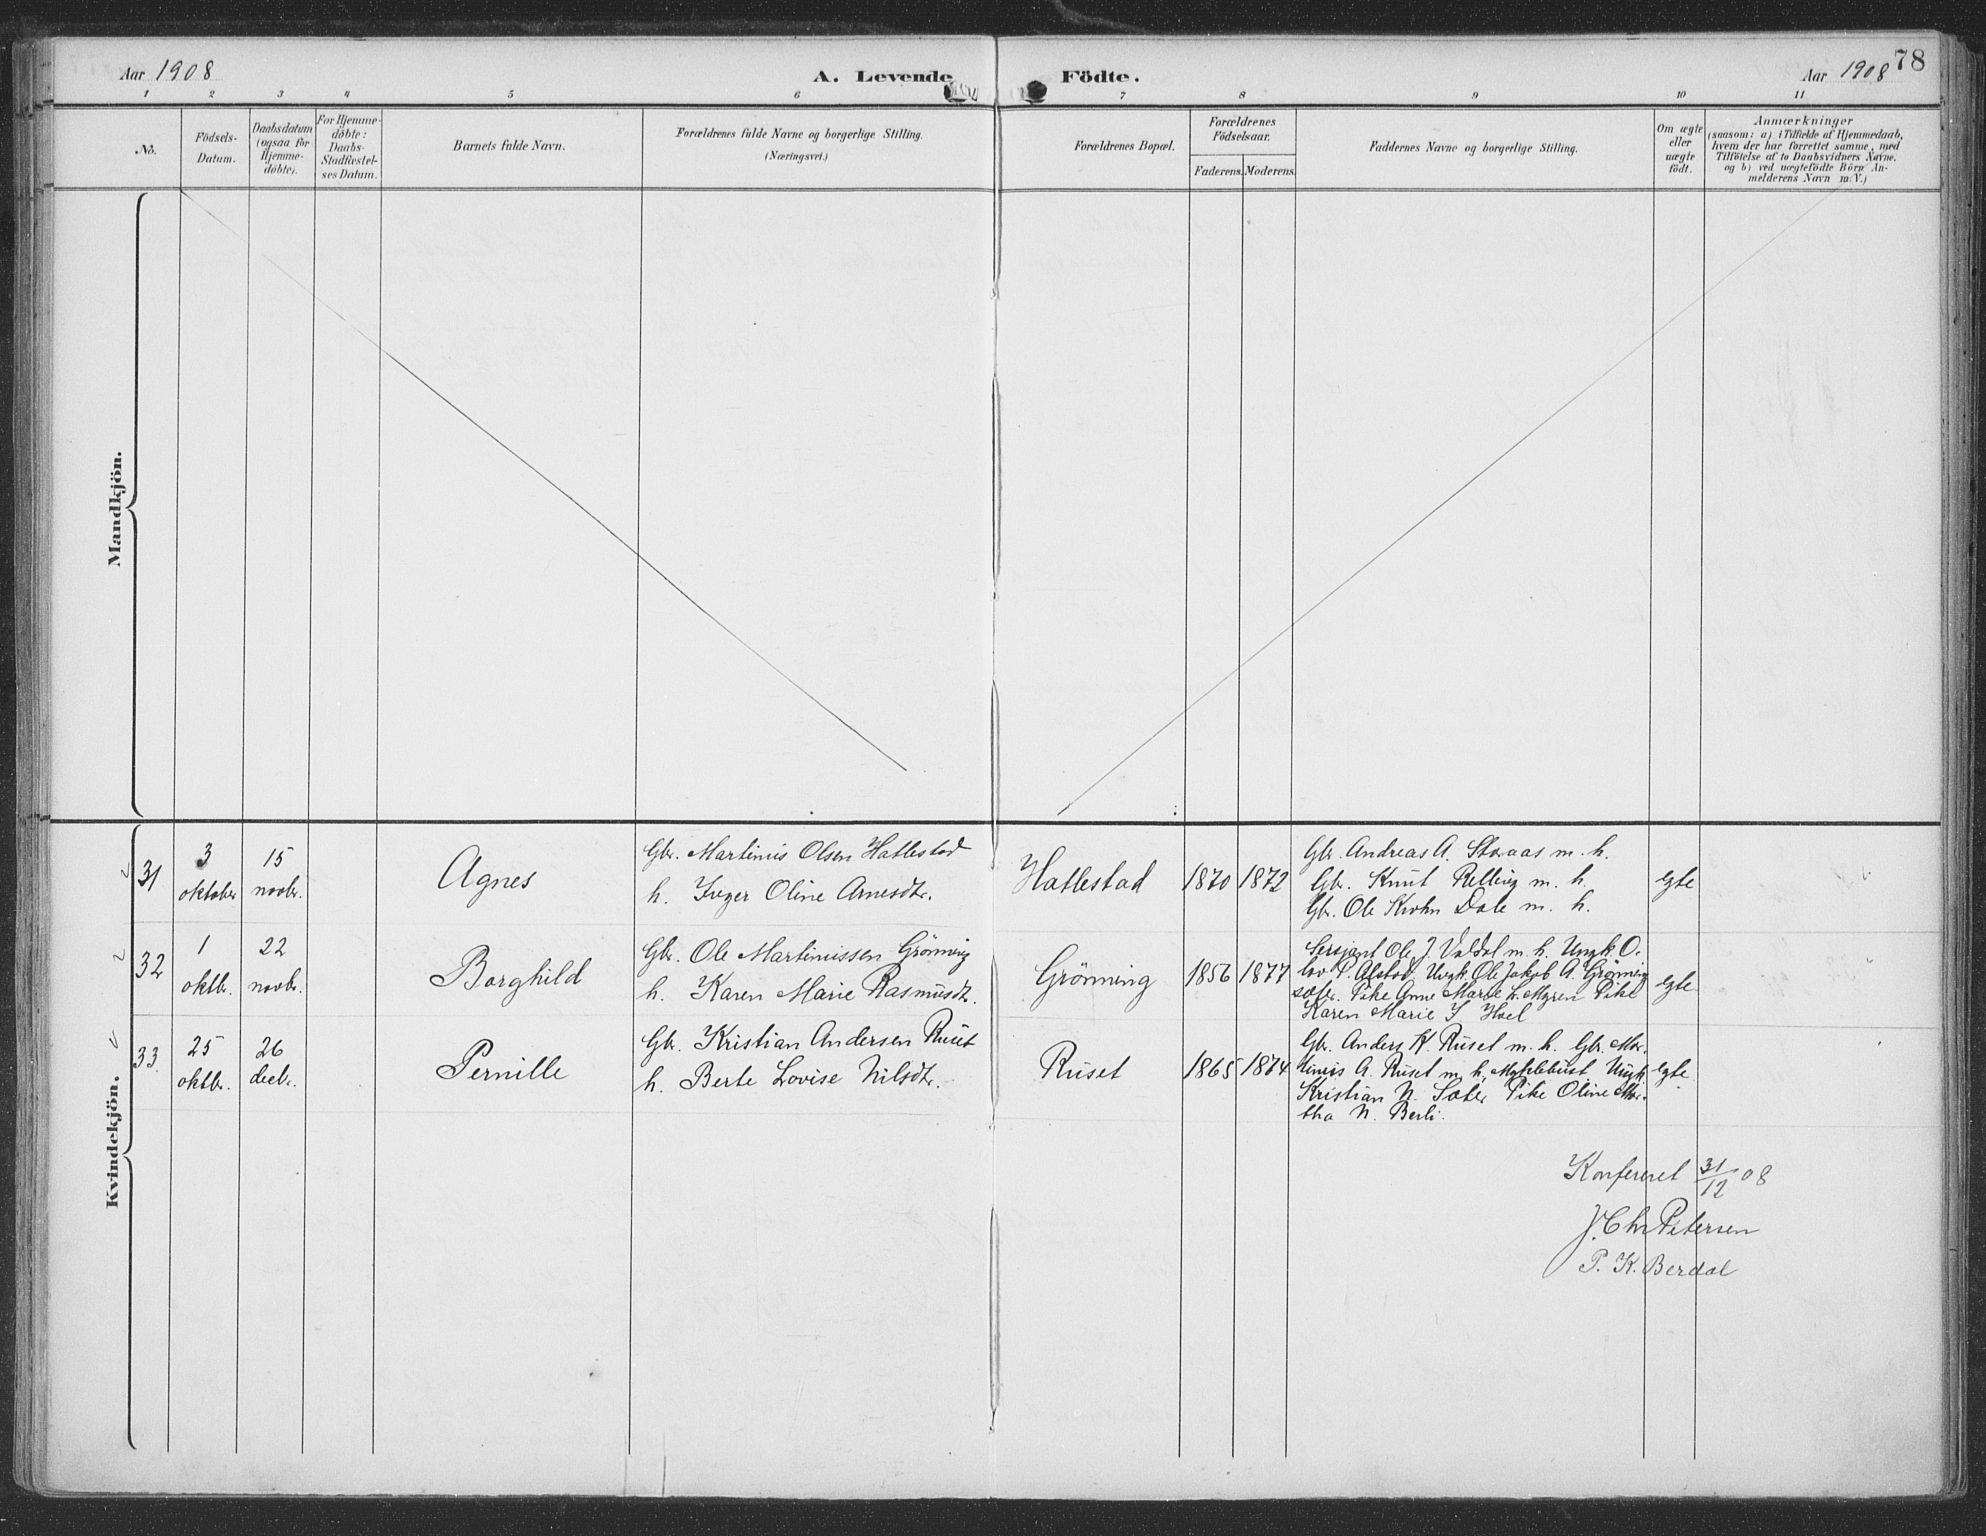 Aar 1908
A. Levende Födte.
Aar 1908
78
1 2 3 4 5 6 7 8 9 10 11
No.
Födsels-
Datum.
Daabsdatum
(ogsaa for
Hjemme-
døbte).
For Hjemme-
døbte:
Daabs-
Stadfæstel-
ses Datum.
Barnets fulde Navn.
Forældrenes fulde Navne og borgerlige Stilling.
(Næringsvei.)
Forældrenes Bopæl.
Forældrenes
Födselsaar.
Faderens. Moderens.
Faddernes Navne og borgerlige Stilling.
Om ægte
eller
uægte
födt.
Anmærkninger
(saasom: a) i Tilfælde af Hjemmedaab,
hvem der har forrettet samme, med
Tilföielse af to Daabsvidners Navne.
og b) ved uægtefödte Börn An-
melderens Navn m. V.)
Mandkjön.
Kvindekjön.
31
3
oktober
15
novbr.
Agnes
Gbr. Martinus Olsen Hatlestad
h. Inger Oline Arnesdtr.
Hatlestad
1870
1872
Gbr. Andreas A. Storaas m. h.
Gbr. Knut Relling m. h.
Gbr. Ole Krohn Dale m. h.
egte
32
1
oktbr.
22
novbr.
Borghild
Gbr. Ole Martinussen Grönning
h. Karen Marie Rasmusdtr.
Grönning
1856
1877
Sersjant Ole J. Valdal m. h. Ungk. O-
lav P. Alstad, Ungk. Ole Jakob A. Grönning
sæter. Pike Anne Marie L. Myren Pike
Karen Marie I. Hoel
egte
33
25
oktbr.
26
decbr.
Pernille
Gbr. Kristian Andersen Ruset
h. Berte Lovise Nilsdtr.
Ruset
1865
1874
Gbr. Anders K. Ruset m. h. Gbr. Mar-
tinus A. Ruset m. h. Myklebust Ungk.
Kristian N. Sæter Pike Oline Mar-
tha N. Berli.
egte
Konfereret 31/12 08
J. Chr Petersen
P. K. Berdal